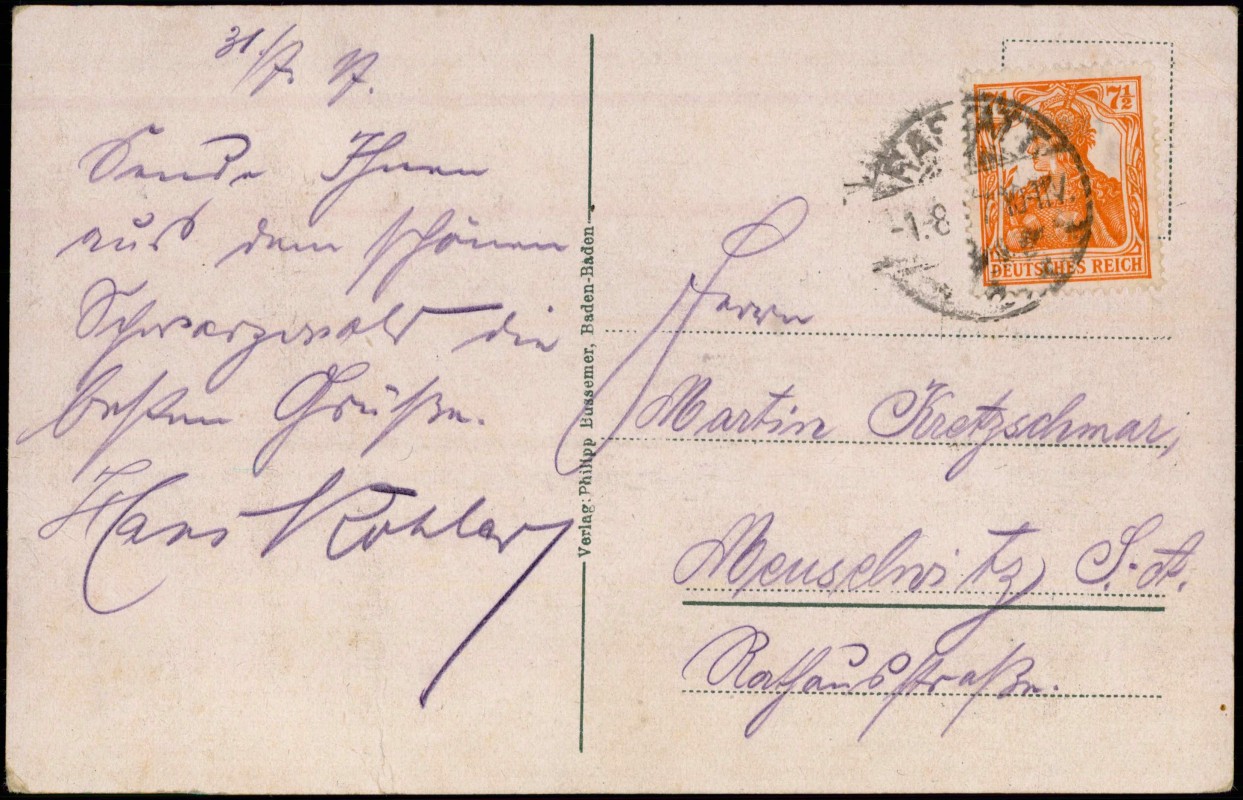 31./7. 17.
Sende Ihnen
aus dem schönen
Schwarzwald die
besten Grüße.
Hans Kohler
Verlag: Philipp Bussemer, Baden-Baden
7½
DEUTSCHES REICH
RASTATT
-1.8
Herrn
Martin Kretzschmar,
Meuselwitz S.-A.
Rathausstraße.